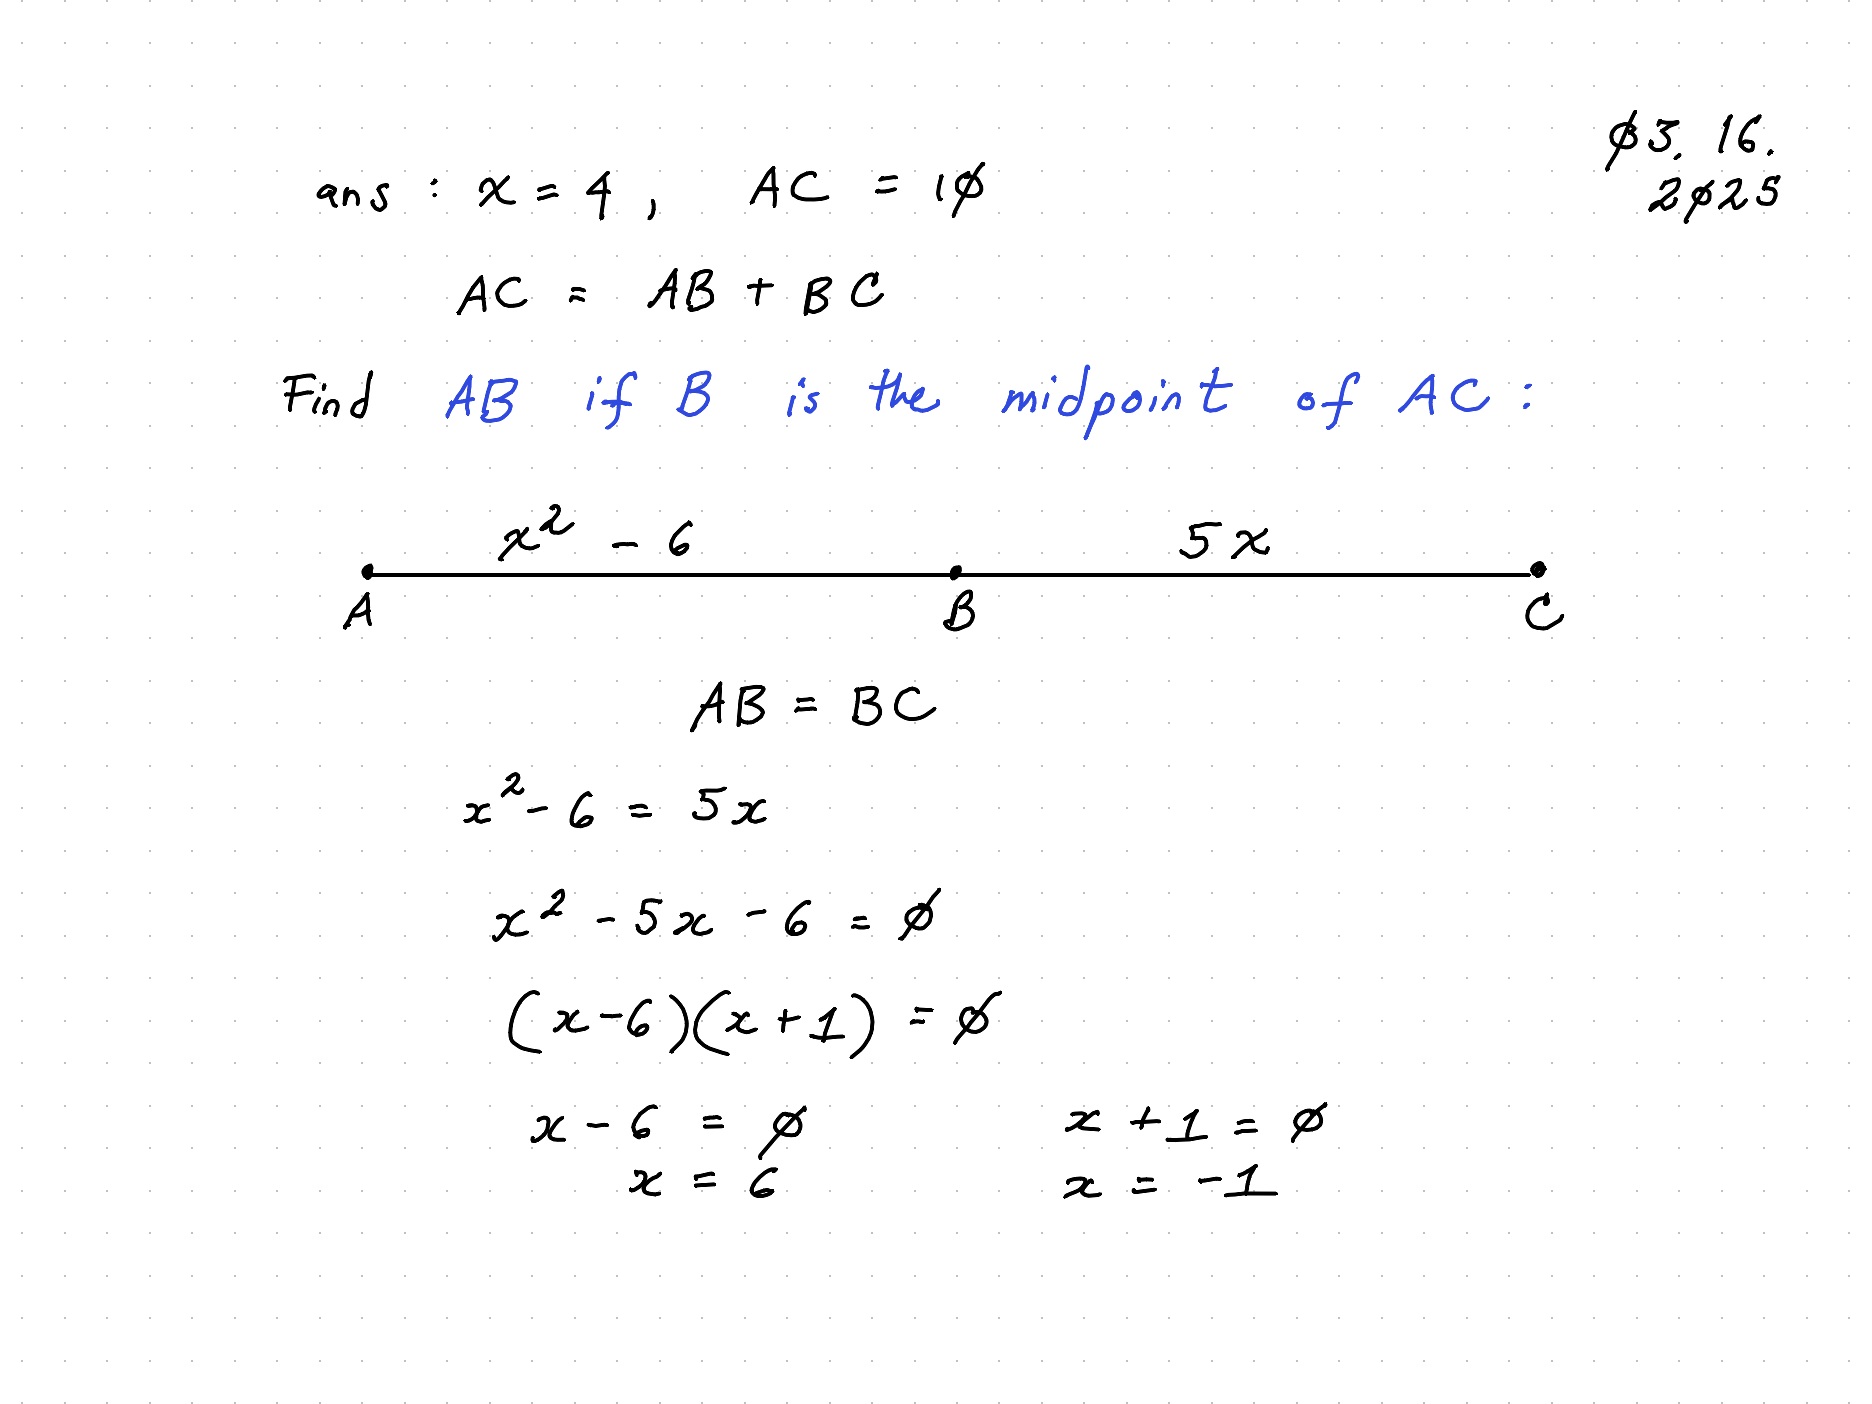 ø3. 16.
2ø25
ans : x = 4 , AC = 1ø
AC = AB + BC
Find AB if B is the midpoint of AC :
x² - 6 5x
A B C
AB = BC
x² - 6 = 5x
x² - 5x - 6 = ø
(x - 6)(x + 1) = ø
x - 6 = ø x + 1 = ø
x = 6 x = -1